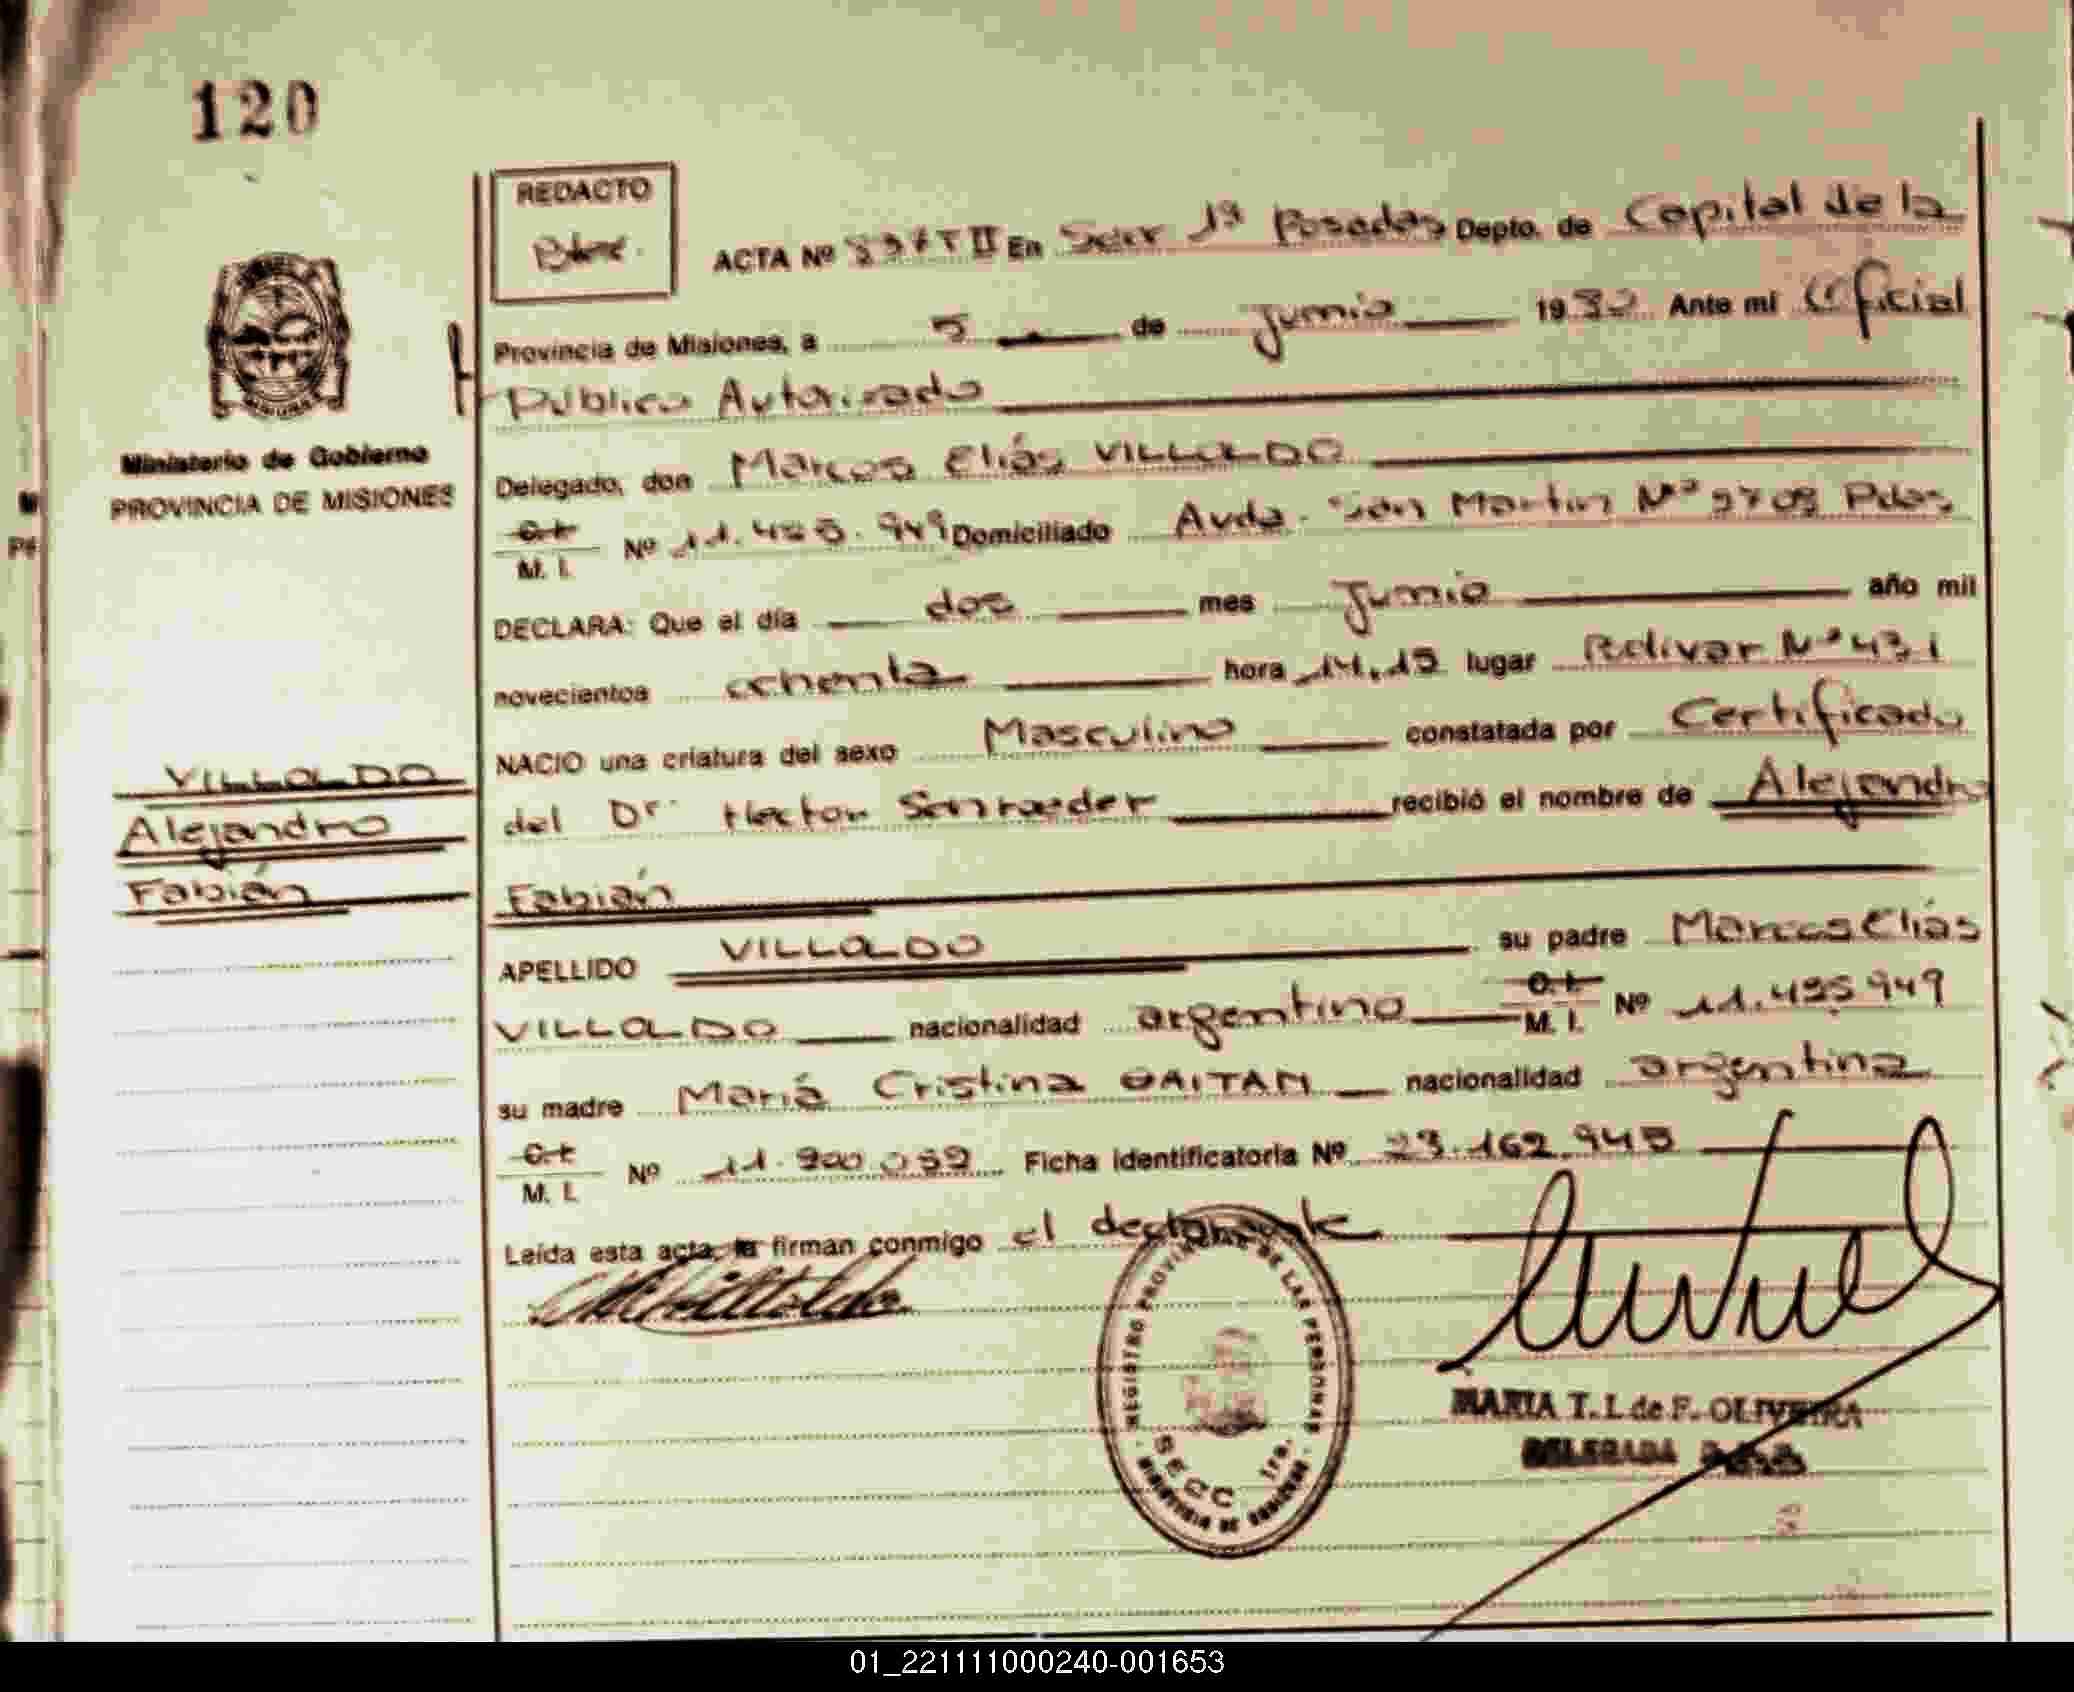 120
REDACTO
ACTA Nº En Secc 1ª Posadas Depto. de Capital de la
Provincia de Misiones, a 5 de Junio 19 Ante mí Oficial
Público Autorizado
Ministerio de Gobierno
PROVINCIA DE MISIONES
Delegado, don Marcos Elías VILLALDO
C.I.
M. I. Nº Domiciliado Avda. San Martin Nº Pdas
DECLARA: Que el día dos mes Junio año mil
novecientos ochenta hora 14,15 lugar Bolivar Nº 431
NACIO una criatura del sexo Masculino constatada por Certificado
del Dr. Hector recibió el nombre de Alejandro
Fabián
VILLALDO
Alejandro
Fabián
APELLIDO VILLALDO su padre Marcos Elías
VILLALDO nacionalidad argentino C.I.
M. I. Nº 11.495.949
su madre María Cristina GAITAN nacionalidad argentina
C.I.
M. I. Nº Ficha identificatoria Nº 23.162.945
Leída esta acta, la firman conmigo el declarante
REGISTRO PROVINCIAL DE LAS PERSONAS
SECC 1ra.
MINISTERIO DE GOBIERNO
MARIA T. I. de F. OLIVEIRA
DELEGADA
01_221111000240-001653